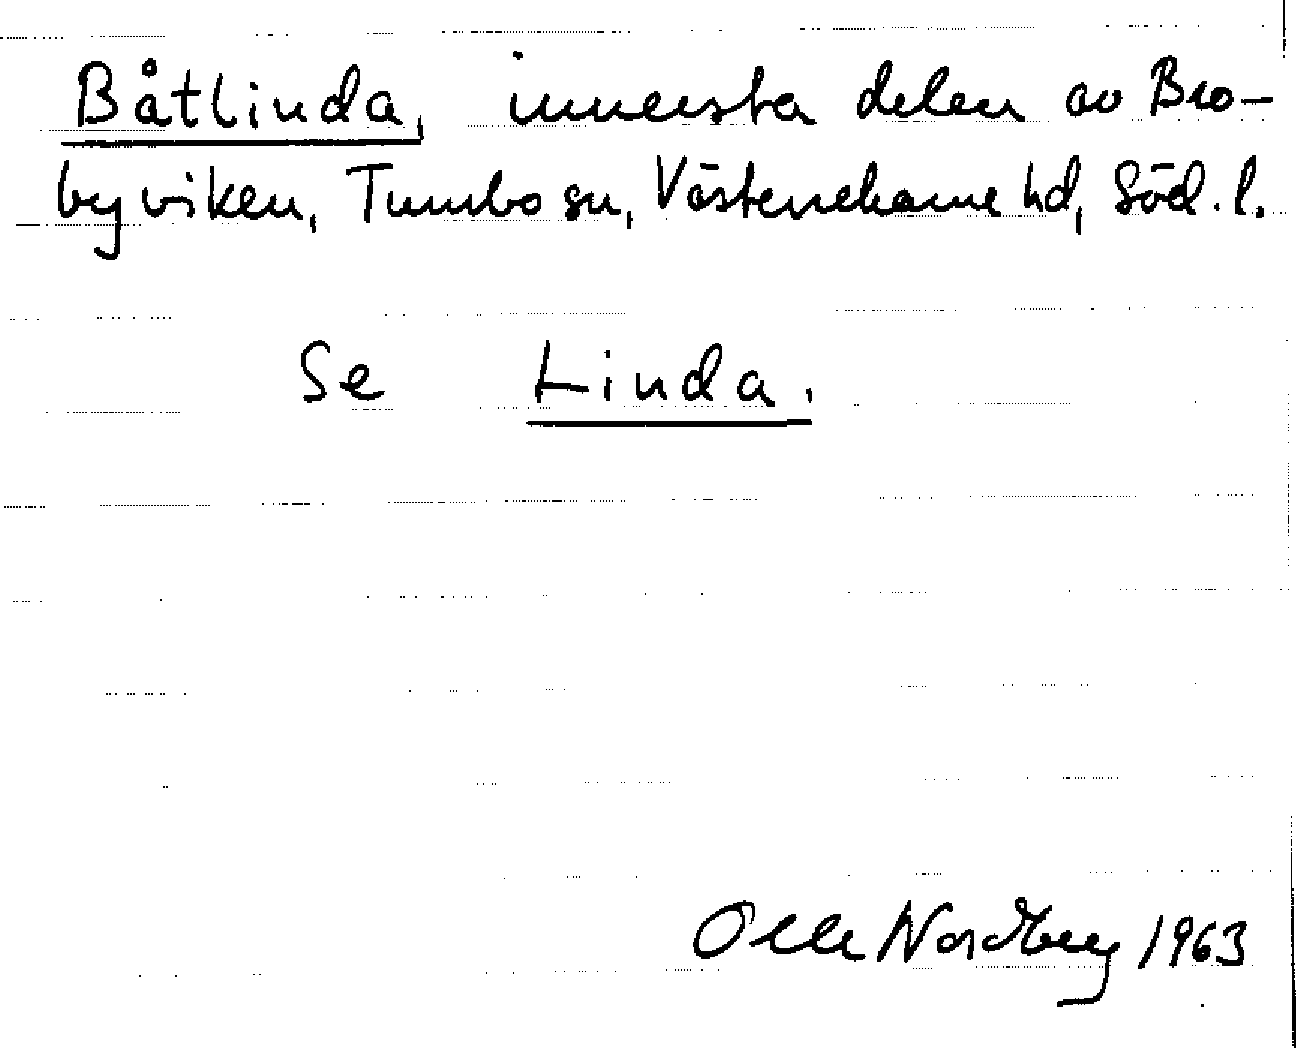 Båtlinda, innersta delen av Bro-
byviken, Tumbo sn, Västerrekarne hd, Söd. l.
Se Linda.
Olle Nordberg 1963